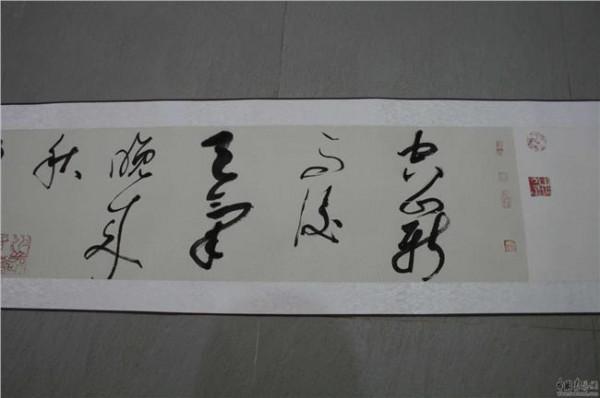 空山新
雨後
天氣
晚來
秋